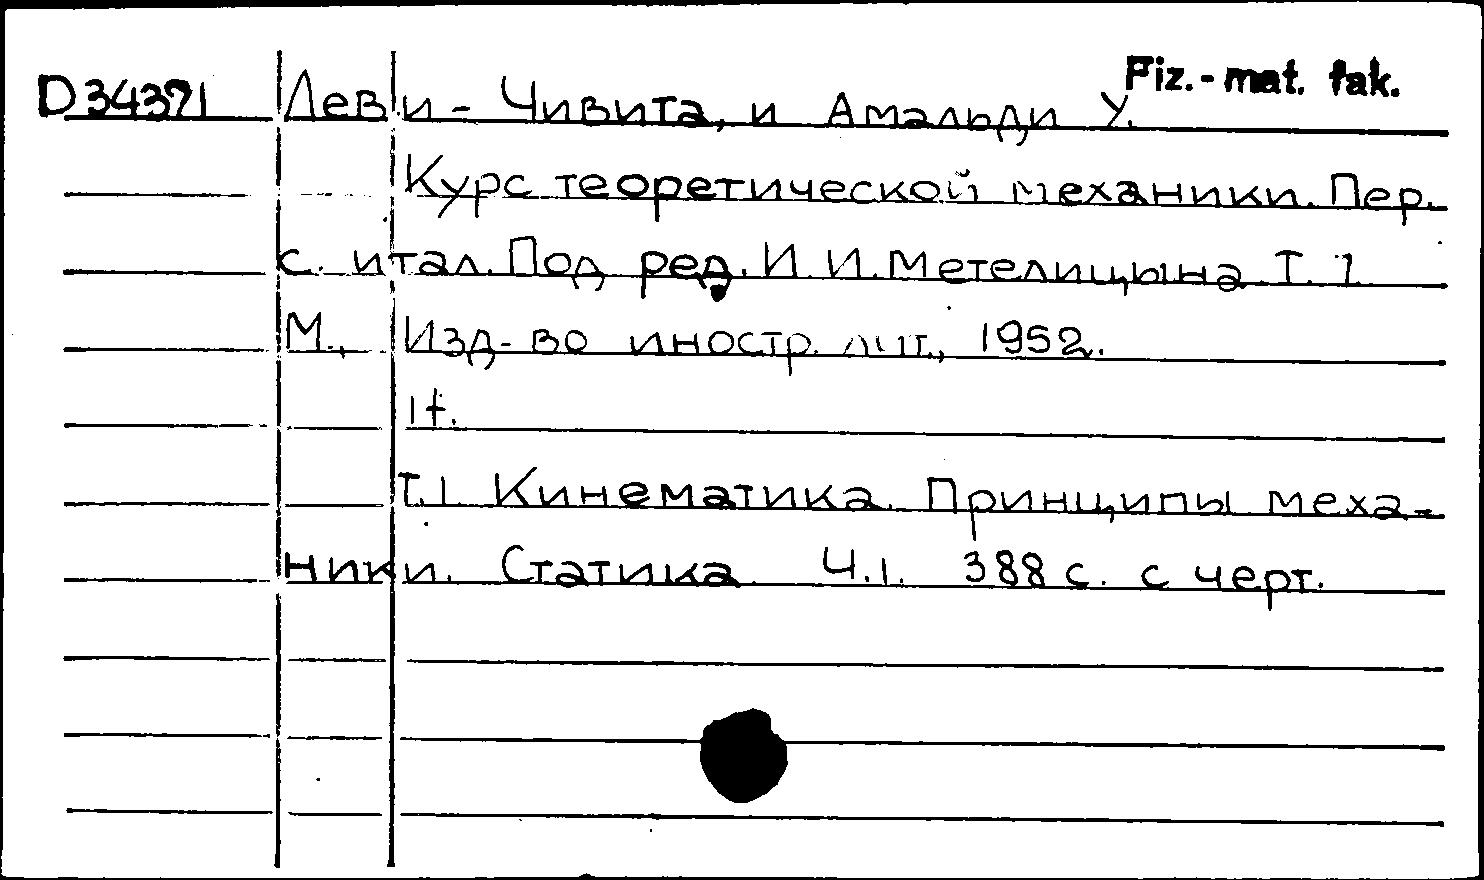 Fiz.-mat. fak.
D34371 Леви-Чивита, и Амальди У.
Курс теоретической механики. Пер.
с. итал. Под ред. И. И. Метелицына Т. 1
М., Изд-во иностр. лит., 1952.
1t.
Т.1 Кинематика. Принципы меха-
ники. Статика Ч.1. 388 с. с черт.